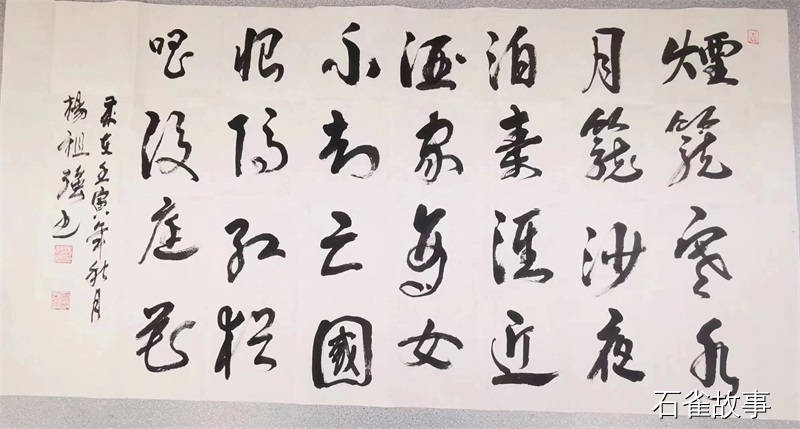 煙籠寒水
月籠沙夜
泊秦淮近
酒家商女
不知亡國
恨隔江猶
唱後庭花
歲在壬寅年秋月
楊祖強书
石雀故事